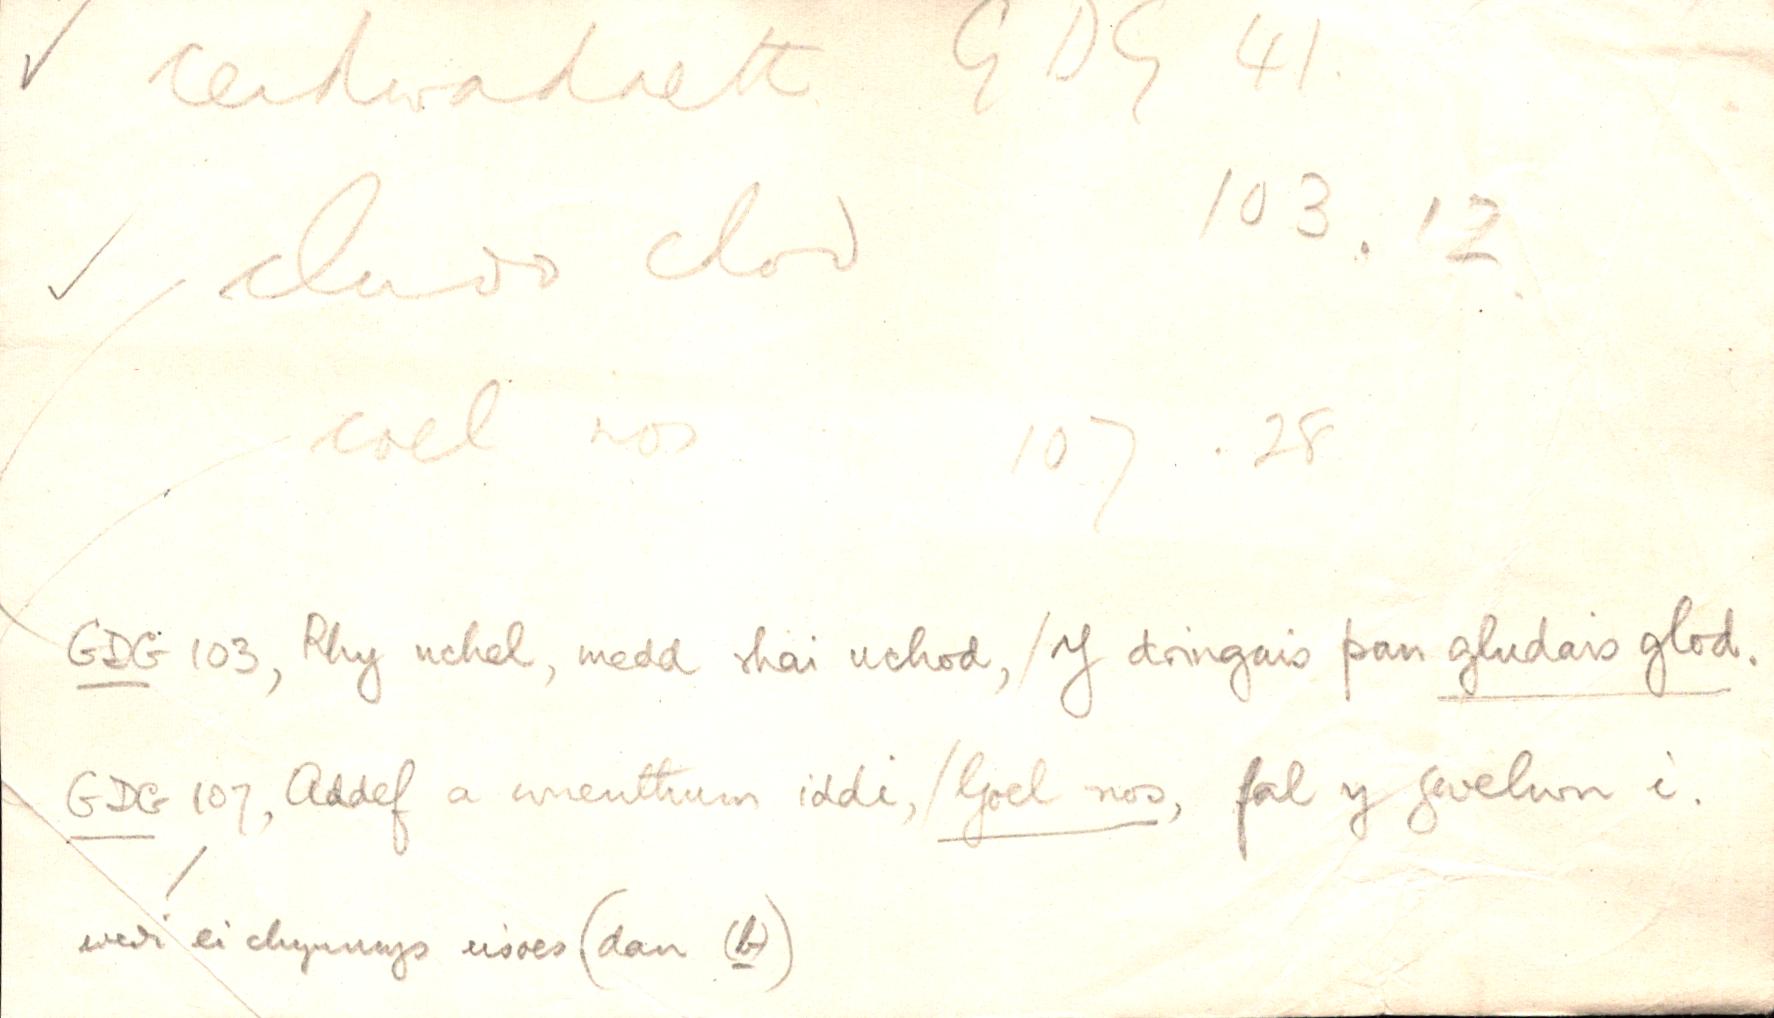 ✓ cerdwadaeth GDG 41.
✓ cludo clod 103.12
coel nos 107.28
GDG 103, Rhy uchel, medd rhai uchod, / Y dringais pan gludais glod.
GDG 107, Addef a wneuthum iddi, / Goel nos, fal y gwelwn i.
wedi ei chynnwys eisoes (dan (b))